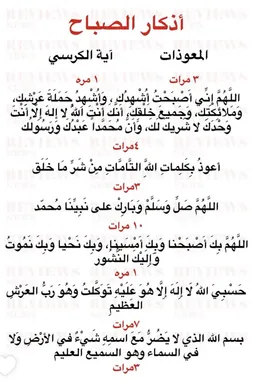 أذكار الصباح
المعوذات آية الكرسي
٣ مرات ١ مره
اللَّهُمَّ إِنِّي أَصْبَحْتُ أُشْهِدُكَ، وَأُشْهِدُ حَمَلَةَ عَرْشِكَ،
وَمَلَائِكَتَكَ، وَجَمِيعَ خَلْقِكَ، أَنَّكَ أَنْتَ اللَّهُ لَا إِلَهَ إِلَّا أَنْتَ
وَحْدَكَ لَا شَرِيكَ لَكَ، وَأَنَّ مُحَمَّدًا عَبْدُكَ وَرَسُولُكَ
٤مرات
أعوذُ بِكَلِمَاتِ اللَّهِ التَّامَّاتِ مِنْ شَرِّ مَا خَلَقَ
٣مرات
اللَّهُمَّ صَلِّ وَسَلِّمْ وَبَارِكْ على نَبِيِّنَا مُحمَد
١٠ مرات
اللَّهُمَّ بِكَ أَصْبَحْنَا وَبِكَ أَمْسَينا، وَبِكَ نَحْيا وَبِكَ نَمُوتُ
وَإِلَيْكَ النُّشُور
١ مره
حَسْبِيَ اللهُ لَا إِلَهَ إِلَّا هُوَ عَلَيْهِ تَوَكَّلتُ وَهُوَ رَبُّ العَرْشِ
العَظِيمِ
٧مرات
بِسمِ اللهِ الذي لا يَضُرُّ مَعَ اسمِهِ شَيْءٌ في الأرْضِ وَلا
في السماء وهو السميع العليم
٣مرات